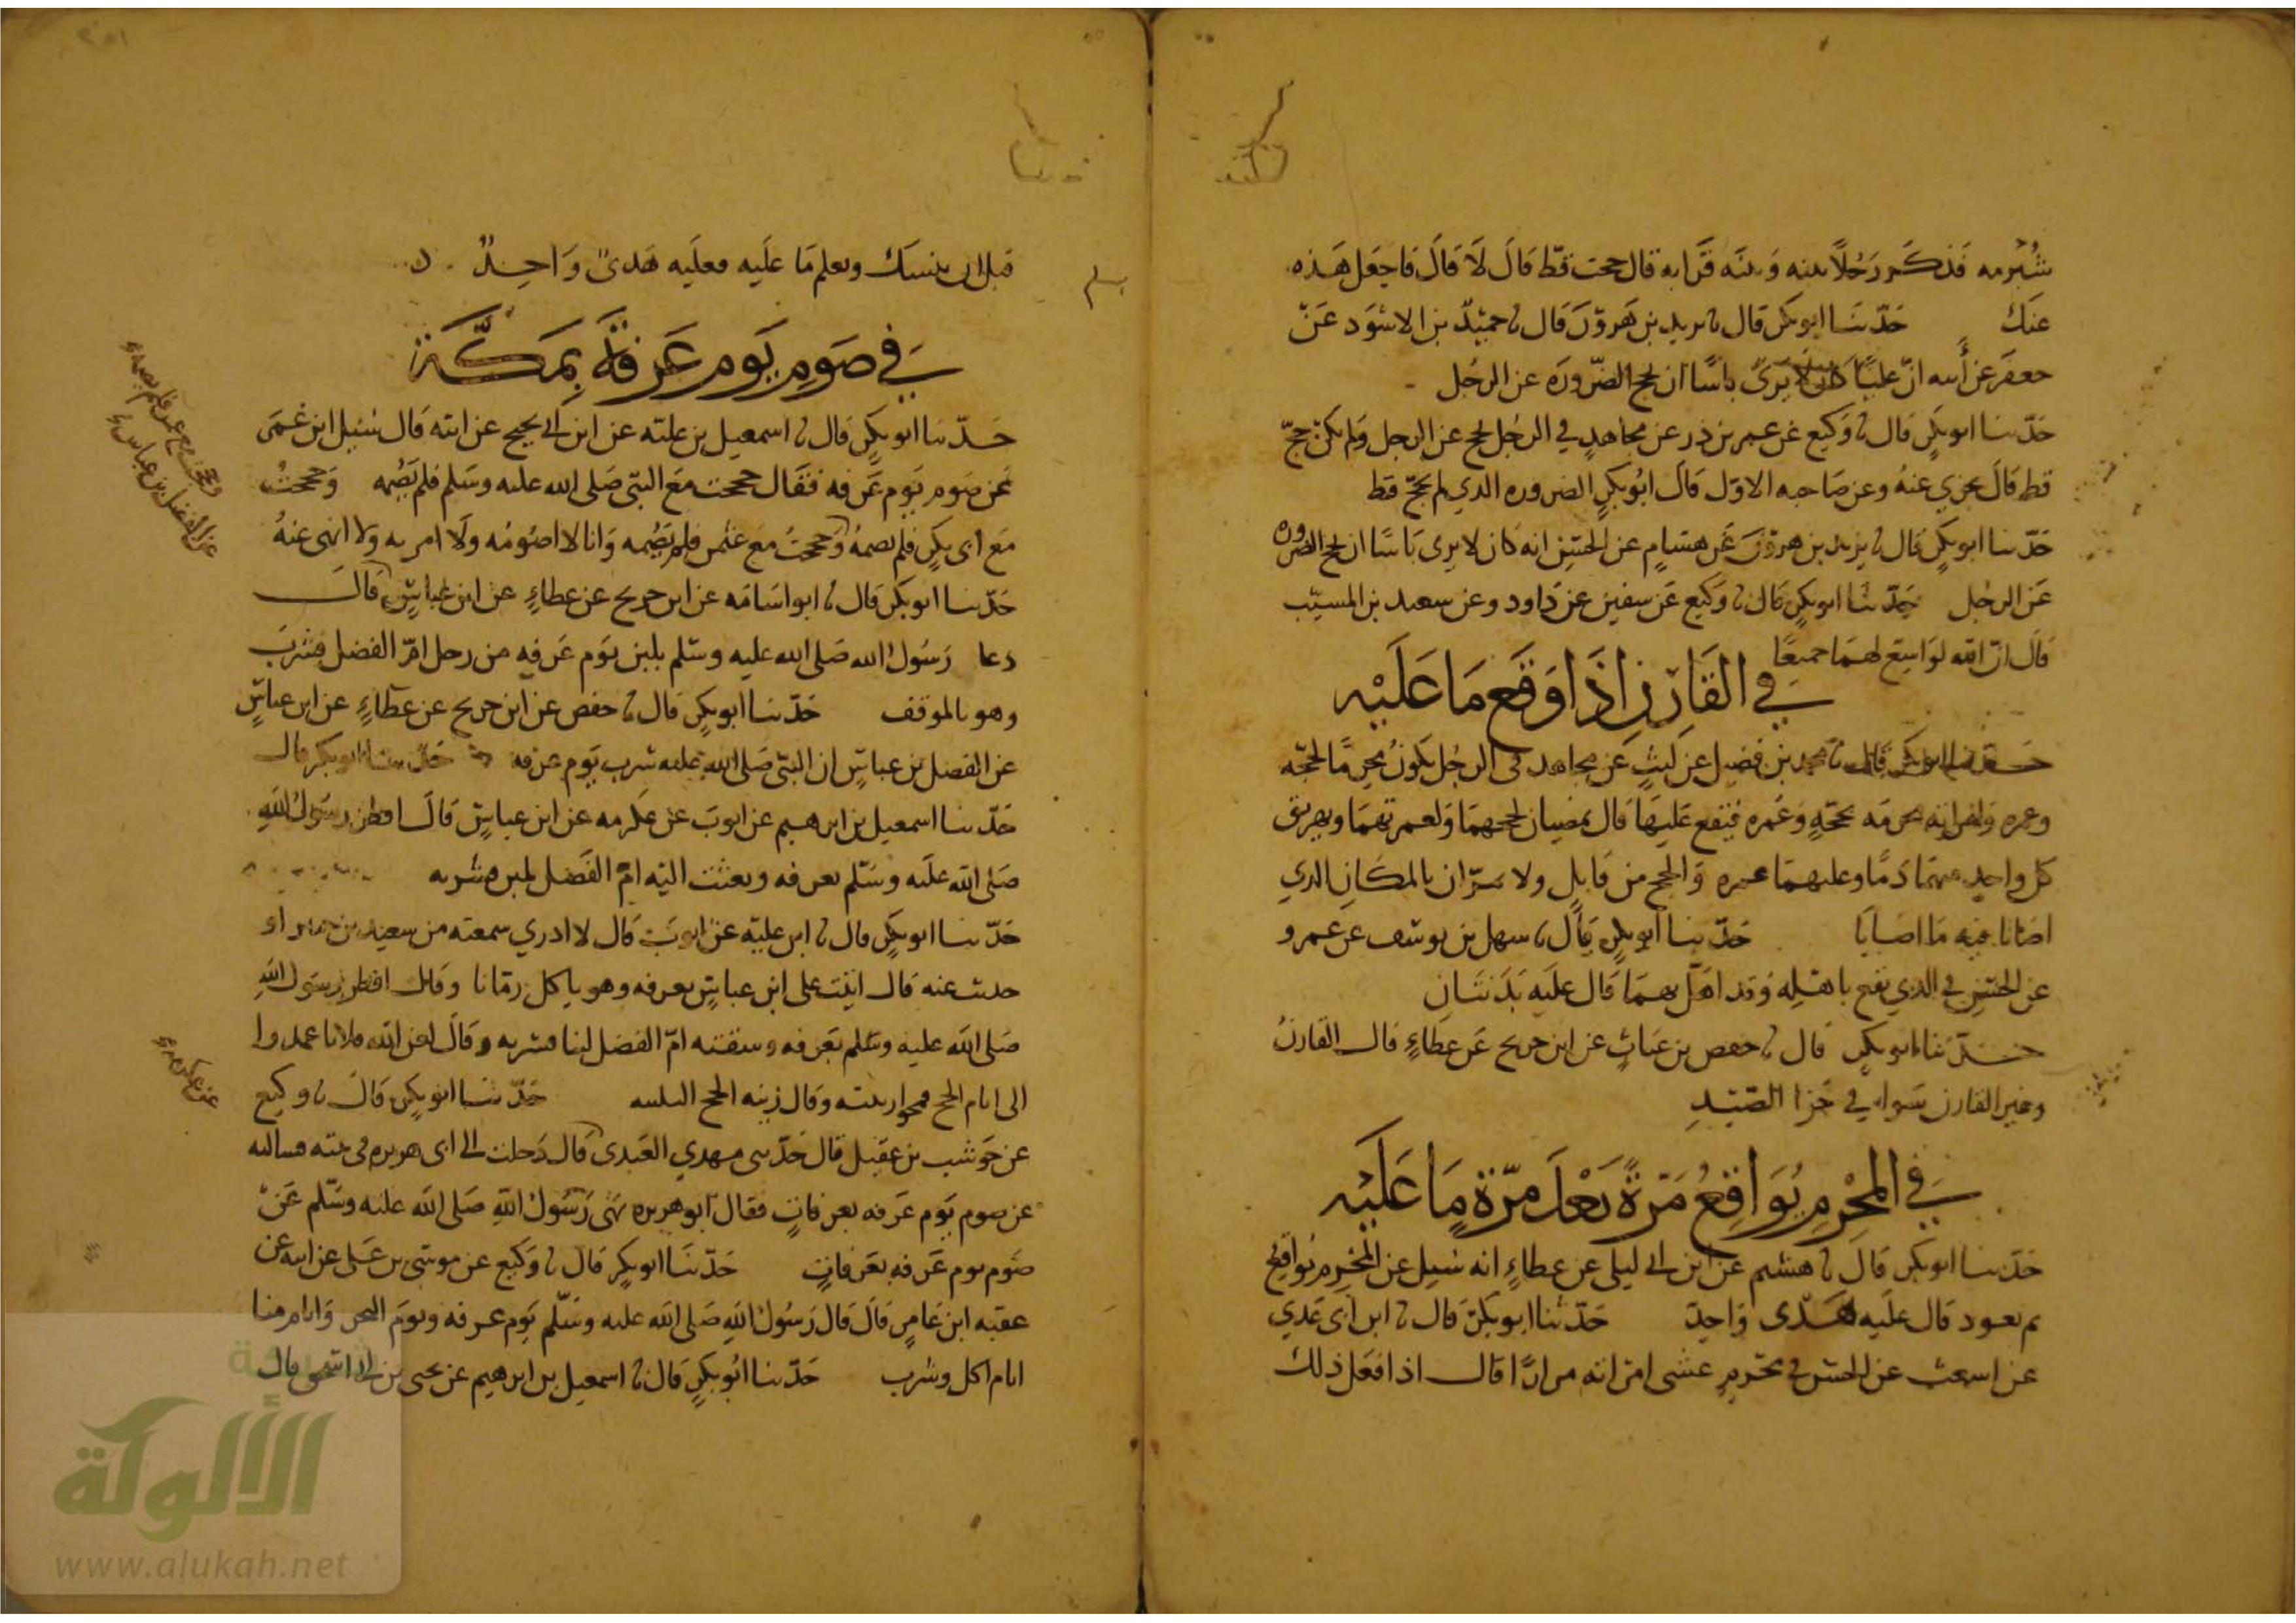 شُبْرمه فَذكَر رَجُلاً بينه وَبينَه قَرَابه قال حججت قطّ قَالَ لَا قَالَ فاجعَل هَذه
عنكَ حَدّثنَا ابو بكرٍ قال نا يزيد بن هَروُنَ قَال نا حميْدُ بن الاسْوَد عَنْ
جعفَر عن أبيه انّ عليّاً كان لا يَرَى باسًا ان يحج الصّرُورَه عن الرجُل
حَدّثنا ابو بكرٍ قال نا وَكيع عن عمر بن ذر عن مجاهدٍ في الرجُل يحج عن الرجل وَلم يكنْ حجّ
قط قَالَ يجزي عنهُ وعن صَاحبه الاوّل قَالَ ابُو بكرٍ الصروره الذي لم يحجّ قط
حَدّثنا ابو بكرٍ قال نا يزيد بن هرونَ عَن هشامٍ عن الحسَن انه كان لا يرى بَاسًا ان يحج الصروره
عَن الرجُل حَدّثنَا ابو بكرٍ قال نا وَكيع عَن سفين عن دَاود وعن سعيد بن المسيّب
قَال انّ الله لوَاسِعٌ لهمَا جميعًا
في القَارِنِ اِذَا وَقَعَ مَا عَلَيْهِ
حَدّثنا ابو بكر قال نا محمد بن فضيل عن ليثٍ عَن مجاهد في الرجُل يكُونُ محرمًا بحجّه
وعمره وَامراته محرمَه بحجّهٍ وَعمَره فيَقع عَليهَا قَال يمضيان لحجهمَا وَلعمرتهمَا ويهريق
كل واحدٍ منهمَا دَمًا وعليهمَا عمره وَالحج من قَابلٍ ولا يمرّان بالمكان الذي
اصَابا فيه مَا اصَابَا حَدّثنا ابو بكرٍ قَال نا سهل بن يوسُف عن عَمرو
عن الحسَن في الذي يقع باهلِه وَقد اهَلّ بهمَا قَال عليَه بَدَنتَانِ
حَدّثنا ابو بكرٍ قال نا حفص بن غياثٍ عن ابن جريج عَن عطاءٍ قال القارنُ
وغير القارن سَواء في جَزا الصّيدِ
في المحْرِمِ يُوَاقِعُ مَرّةً بَعْدَ مَرّةٍ مَا عَلَيْهِ
حَدّثنا ابو بكر قَالَ نا هشيم عَن ابن ابي ليلى عن عطاءٍ انه سُيل عن المحْرِمِ يُواقع
ثم يعود قَال عليَه هَدْى وَاحِد حَدّثنا ابو بكرٍ قال نا ابن ابي عَدي
عن اشعث عن الحسَن في محرمٍ غشى امراته مرارًا قال اذا فعَل ذلك
قبل ان ينسك ويعلم مَا عَلَيه فعليَه هَدىٌ وَاحِدٌ
في صَومِ يَوم عَرَفَةَ بِمَكَّةَ
حَدّثنا ابو بكرٍ قال نا اسمعيل بن عليّه عن ابن ابي نجيح عن ابيه قَال سُيل ابن عُمَر
عَن صَوم يَوم عَرفه فقَال حججت مَع النبيّ صَلى الله عليه وسَلم فلم يَصُمه وَحججتُ
مَع ابي بكرٍ فلم يصمهُ وَحججتُ مع عثمن فلم يَصُمه وَانا لا اصُومُه وَلَا امر به وَلا انهى عنهُ
حَدّثنا ابو بكر قَال نا ابو اسَامَه عن ابن جريج عن عطاءٍ عن ابن عباسٍ قَالَ
دعا رَسُولُ الله صَلى الله عليه وسَلم بلبن يَوم عَرفه من رحل امّ الفضل فشربَ
وهو بالموقف حَدّثنا ابو بكرٍ قال نا حفص عن ابن جريج عن عطاءٍ عن ابن عباسٍ
عن الفضل بن عباسٍ ان النبيّ صَلى الله عليه شرب يَوم عرفه حَدّثنا ابو بكر قال
حَدّثنا اسمعيل بن ابرهيم عن ايوبَ عن عكرمه عن ابن عباسٍ قَالَ افطر رسُولُ اللهِ
صَلى الله علَيه وسَلم بعرفه وبعثت اليَه امّ الفَضل بلبن فشربه
حَدّثنا ابو بكرٍ قال نا ابن عليّه عن ايوبَ قال لا ادري سمعته من سعيد بن جبير او
حدث عنه قال اتيْت على ابن عباسٍ بعرفه وهو ياكل رمّانا وقال افطر رسُول اللهِ
صَلى الله عليه وسَلم بعَرفه وسقته امّ الفضل لبنا فشربه وقَالَ لعن الله فلانا عمدوا
الى ايام الحج فمحوا زينته وقال زينه الحج التلبيه حَدّثنَا ابو بكرٍ قَالَ نا وكيع
عن حَوشب بن عقيل قال حَدّثنى مهدي العَبدى قَال دَخلت الى ابى هريره فى بيته فسالته
عن صوم يَوم عَرفه بعرفاتٍ فقال ابو هريره نهَى رَسُولُ اللهِ صَلى الله عليه وسَلم عَنْ
صَوم يوم عَرفه بعَرفاتٍ حَدّثنَا ابو بكرٍ قَال نا وَكيع عن موسَى بن عَلى عن ابيه عن
عقبه ابن عَامرٍ قَالَ قَال رَسُولُ اللهِ صَلى الله عليه وسَلم يَوم عرفه ويومَ النحر وَايام منا
ايام اكل وشرب حَدّثنا ابُو بكرٍ قَال نا اسمعيل بن ابرهيم عن يحيى بن ابي اسحق قال
وحججت مع عمر فلم يصمه
عن الفضل بن عباس
الألوكة
www.alukah.net